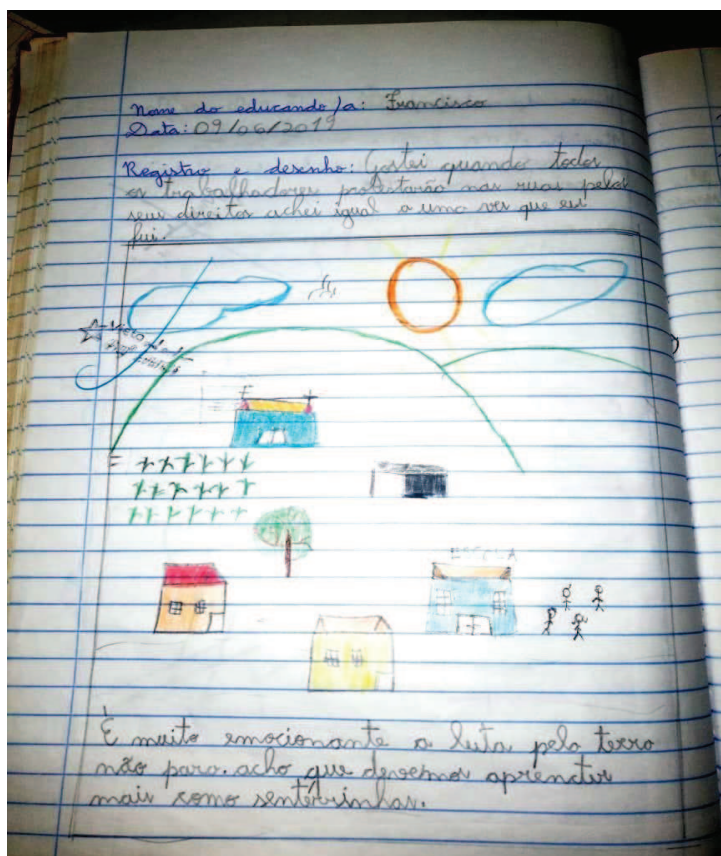 Nome do educando/a: Francisco
Data: 09/06/2019
Registro e desenho: Gostei quando todos
os trabalhadores protestarão nas ruas pelos
seus direitos achei igual a uma ves que eu
fui.
ESCOLA
É muito emocionante a luta pela terra
não para. acho que devemos aprender
mais como senterrinhas.